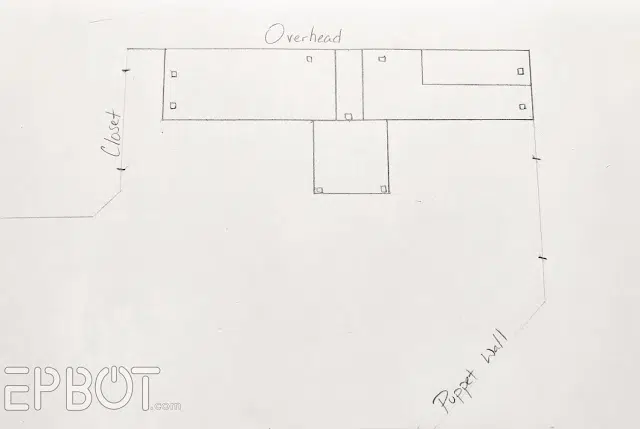 Overhead
Closet
Puppet Wall
EPBOT.com